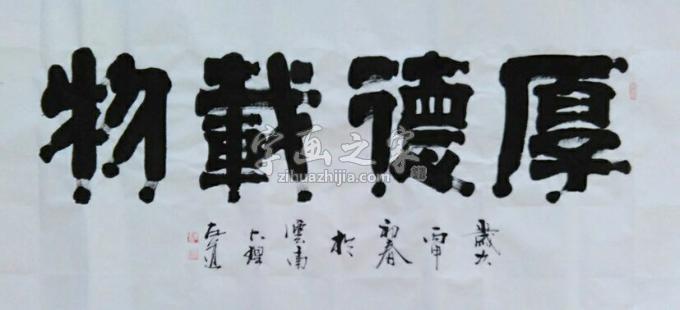 厚德載物
歲次
丙申
初春
於
雲南
大理
字画之家
zihuazhijia.com